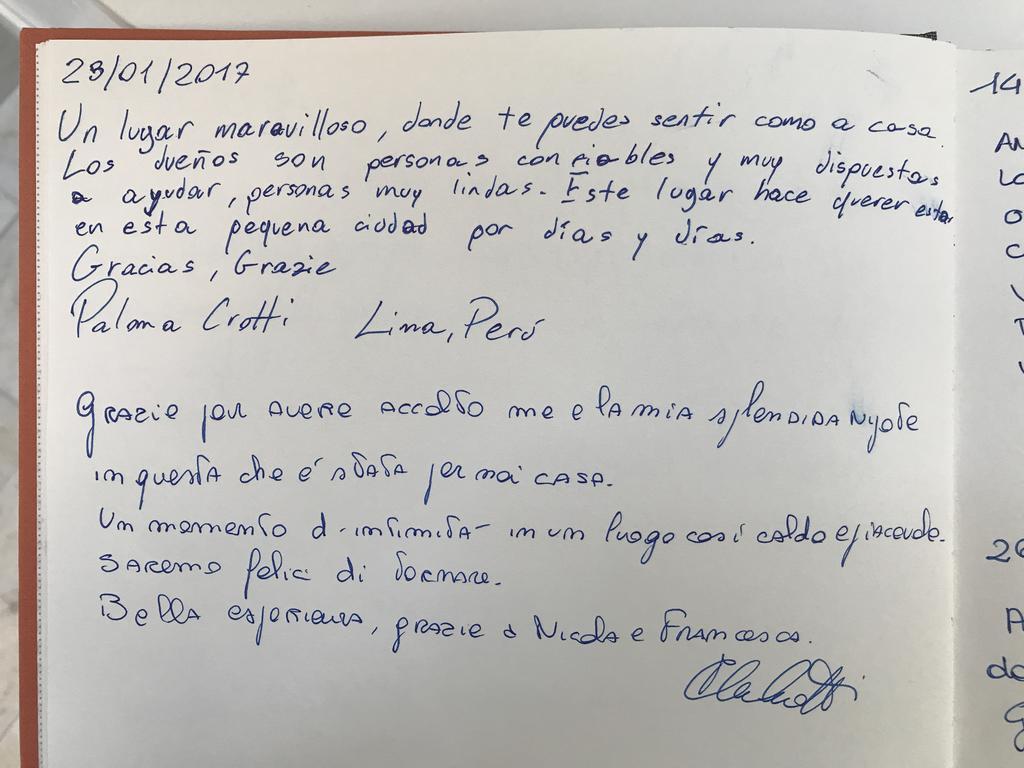 23/01/2017
Un lugar maravilloso, donde te puedes sentir como a casa.
Los dueños son personas confiables y muy dispuestas
a ayudar, personas muy lindas. Este lugar hace querer estar
en esta pequena ciudad por días y días.
Gracias, Grazie
Paloma Crotti Lima, Perú
Grazie per avere accolto me e la mia splendida nipote
in questa che é stata per noi casa.
Un momento d-intimita- in un luogo cosí caldo e piacevole.
Saremo felici di tornare.
Bella esperienza, grazie a Nicola e Francesca.
14
26